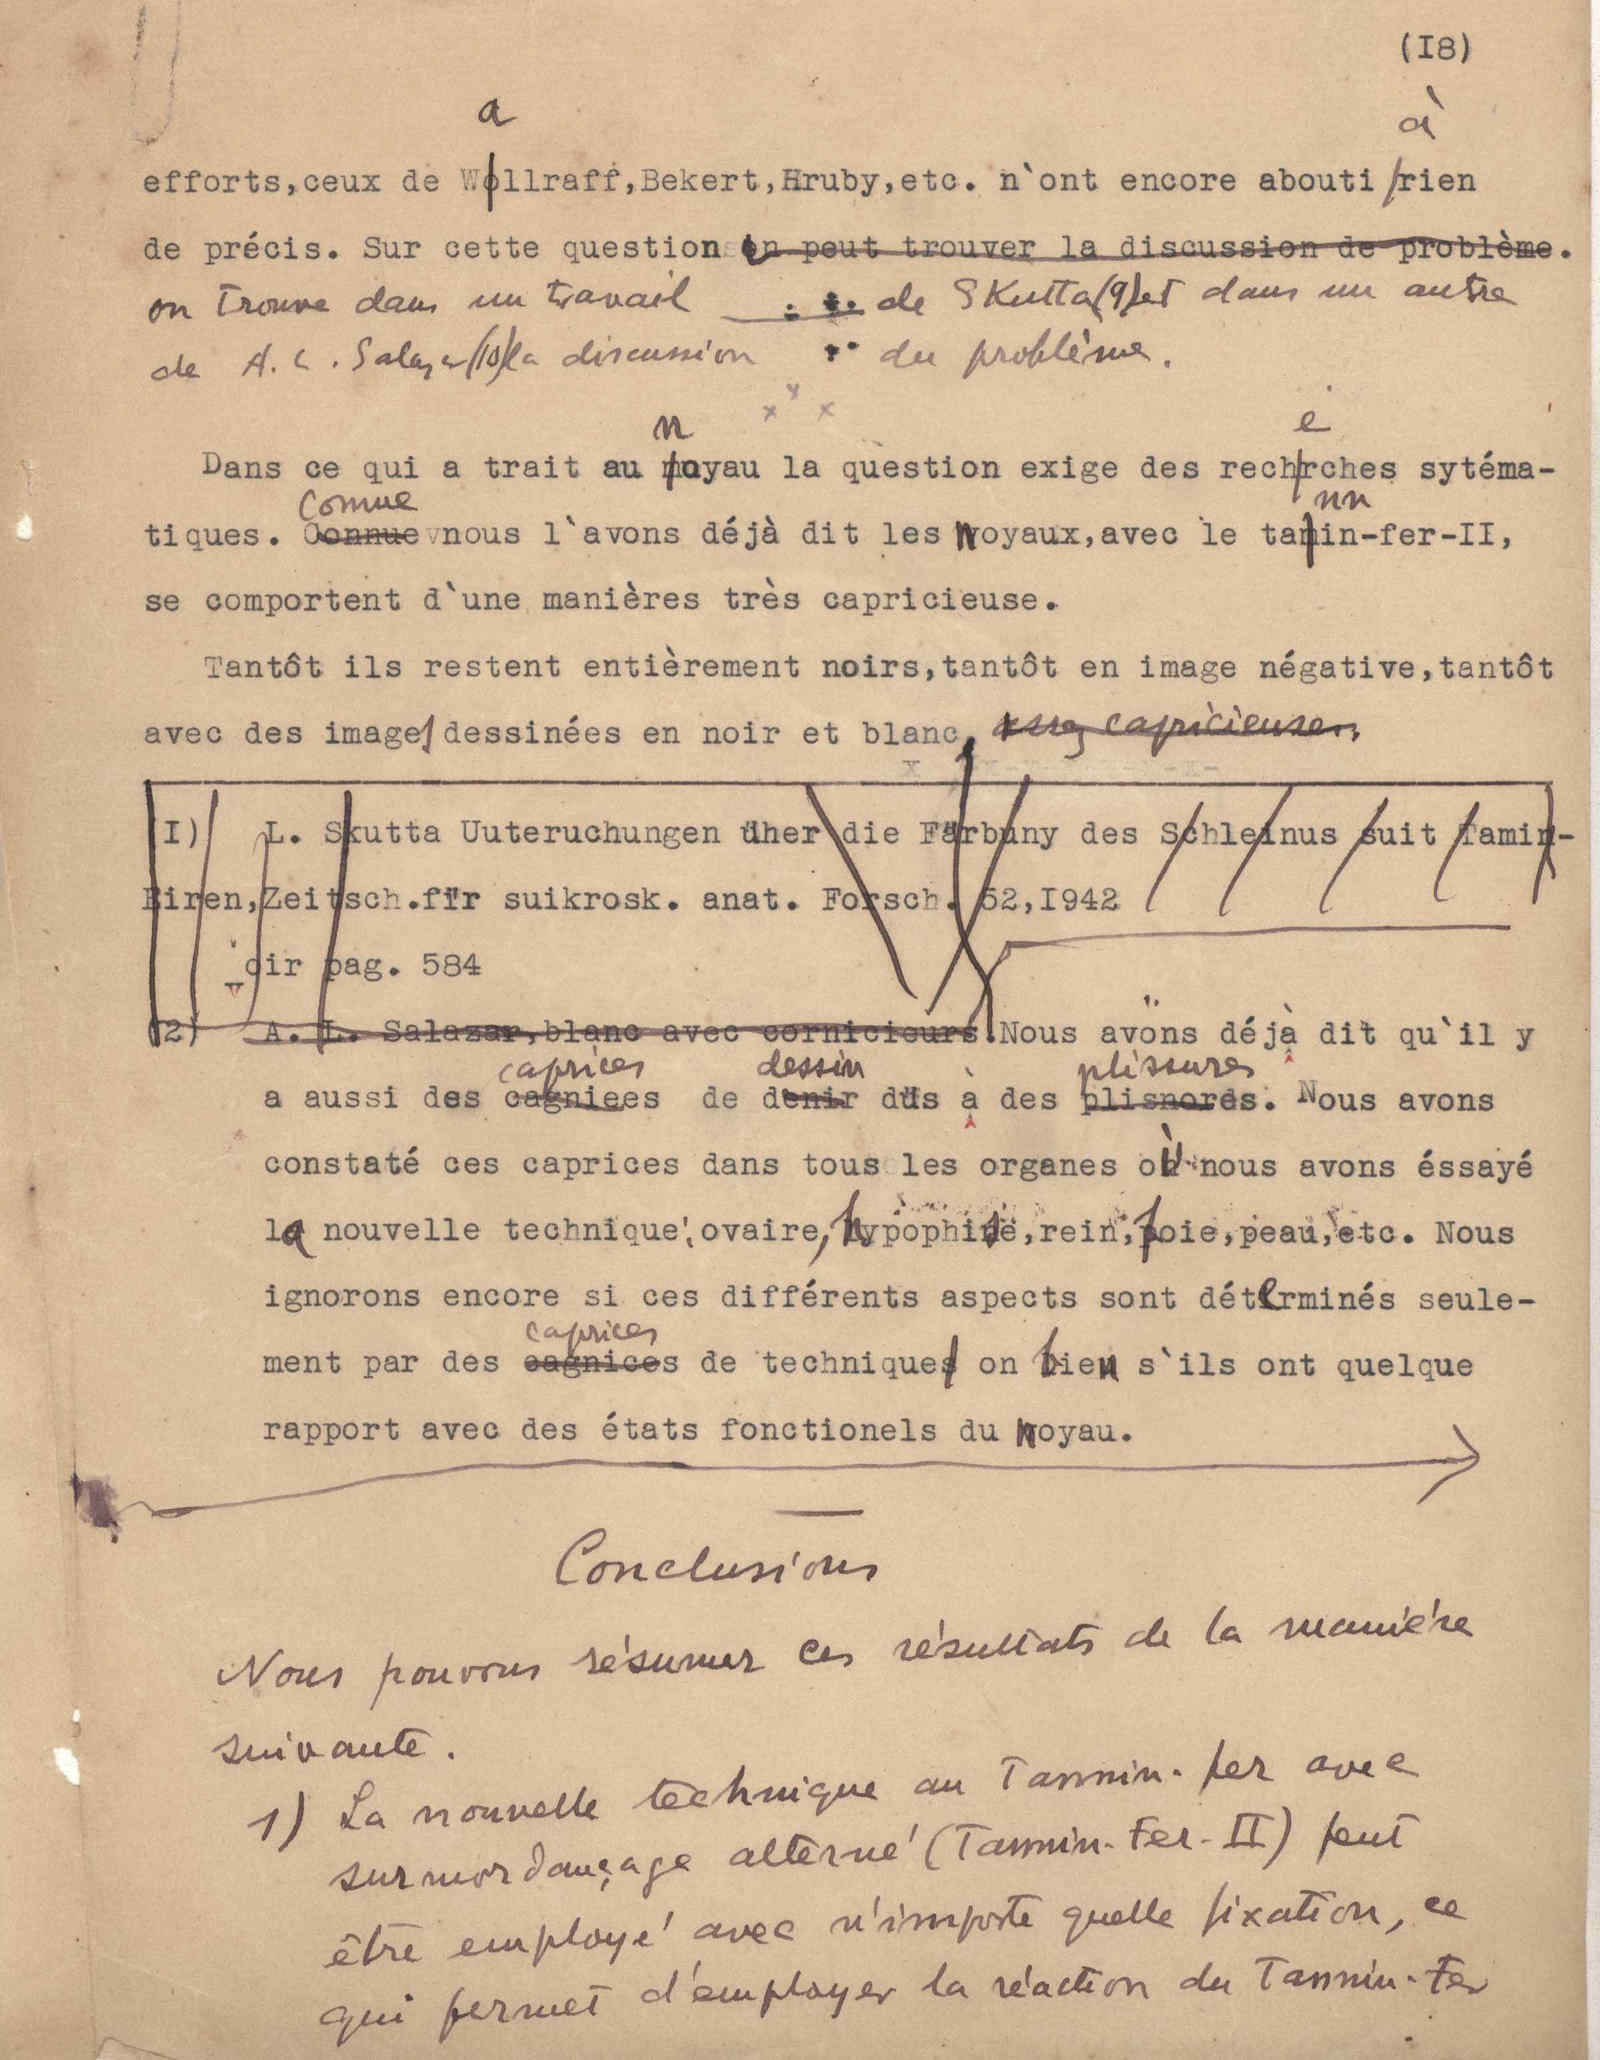 (I8)
a
à
efforts,ceux de Wollraff,Bekert,Hruby,etc. n`ont encore abouti rien
de précis. Sur cette question on peut trouver la discussion de problème.
on trouve dans un travail de Skutta (9) et dans un autre
de A. L. Salazar (10) la discussion du problème.
x x x
n
e
Dans ce qui a trait au noyau la question exige des rechrches sytéma-
Comme
nn
tiques. Oonnue nous l`avons déjà dit les noyaux,avec le tanin-fer-II,
se comportent d`une manières très capricieuse.
Tantôt ils restent entièrement noirs,tantôt en image négative,tantôt
avec des image dessinées en noir et blanc, capricieuses,
I) L. Skutta Uuteruchungen üher die Färbuny des Schleinus suit Tamin-
Eiren,Zeitsch.für suikrosk. anat. Forsch. 52,I942
voir pag. 584
(2) A. L. Salazar,blanc avec cornicieurs.Nous avons déjà dit qu`il y
caprices
dessin
plissures
a aussi des cagniees de denir dûs à des plisnores. Nous avons
constaté ces caprices dans tous les organes où nous avons éssayé
la nouvelle technique,ovaire,hypophise,rein,foie,peau,etc. Nous
ignorons encore si ces différents aspects sont déterminés seule-
caprices
ment par des cagnices de technique on bien s`ils ont quelque
rapport avec des états fonctionels du noyau.
Conclusions
Nous pouvons résumer ces résultats de la manière
suivante.
1) La nouvelle technique au Tannin-fer avec
surmordançage alterné (Tannin-Fer-II) peut
être employé avec n'importe quelle fixation, ce
qui permet d'employer la réaction du Tannin-Fer